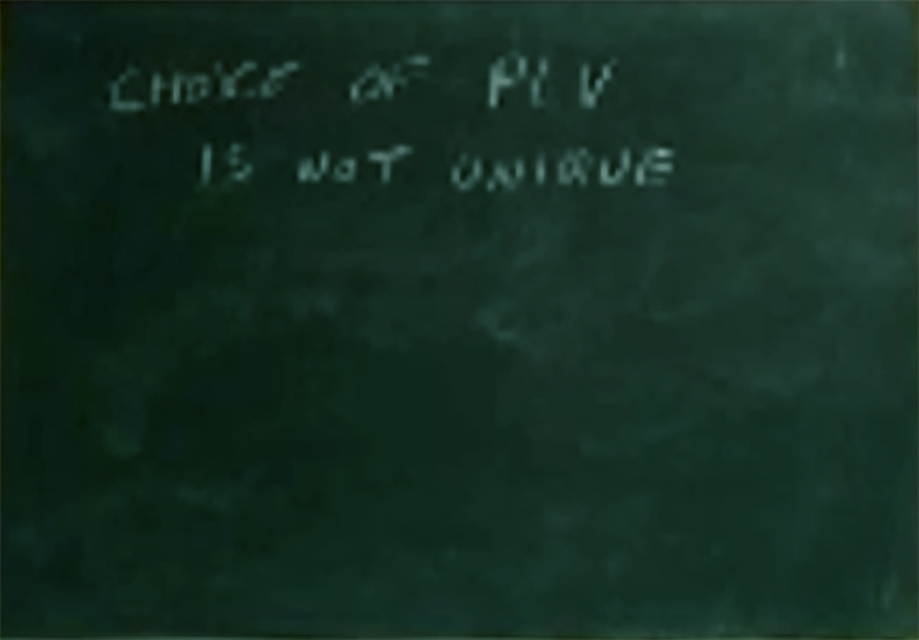 CHOICE OF PLV
IS NOT UNIQUE